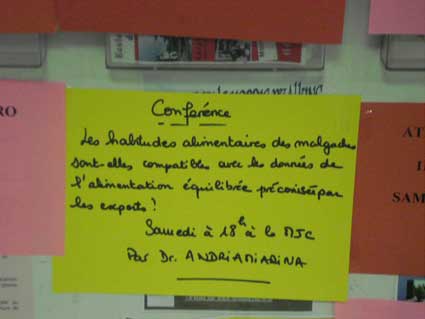 Conférence
Les habitudes alimentaires des malgaches
sont-elles compatibles avec les données de
l'alimentation équilibrée préconisée par
les experts!
Samedi à 18h à la MJC
Par Dr. ANDRIAMIARINA
RO
AT
SAM